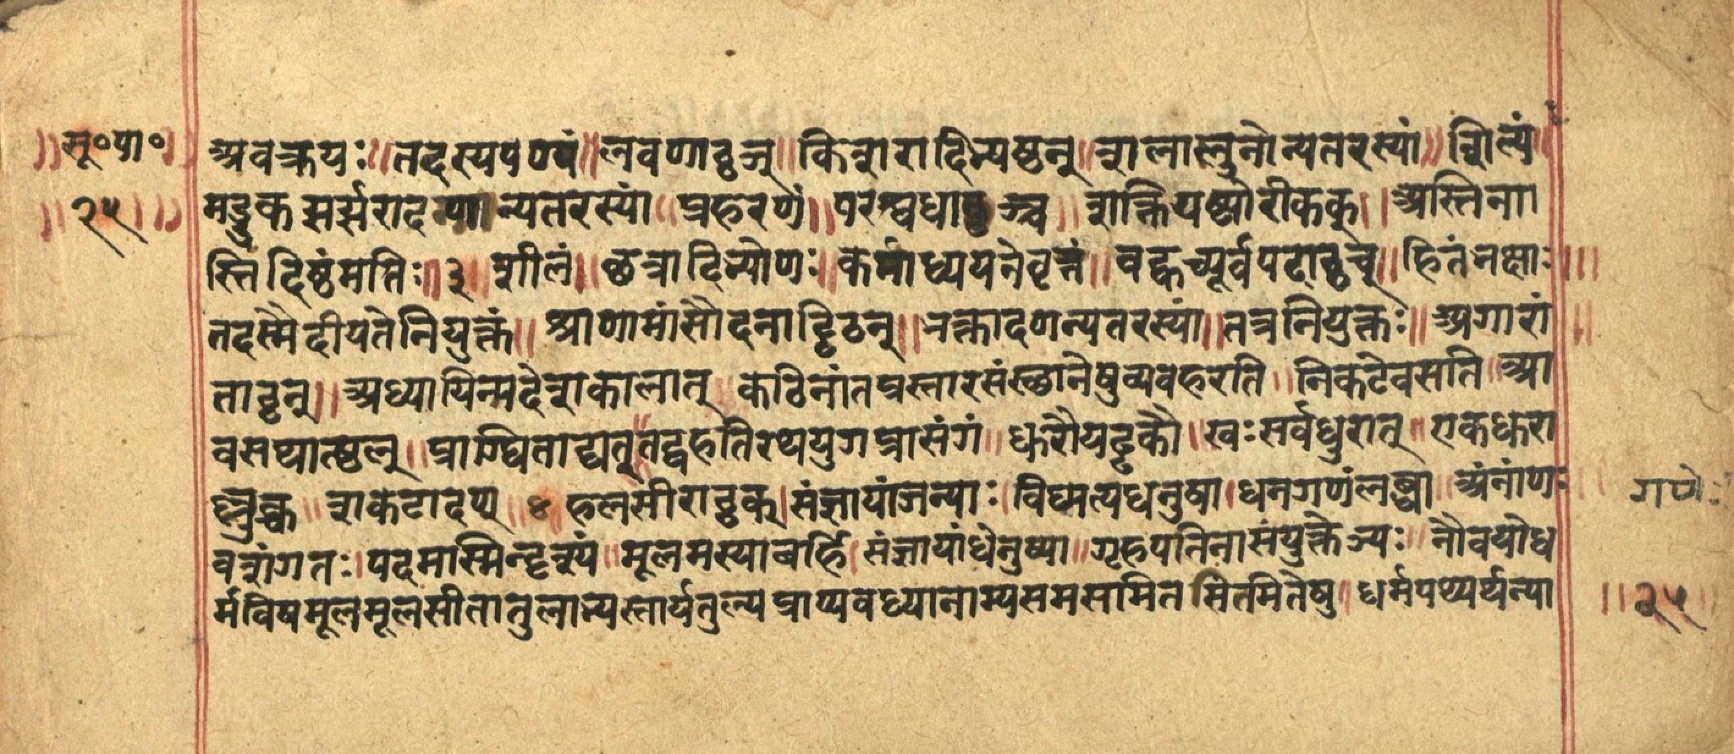 ॥सू०पा०॥ अवक्रयः॥ तदस्यपण्यं॥ लवणाठ्ठञ्॥ किशरादिभ्यष्ठन्॥ शलालुनोन्यतरस्यां॥ शिल्पं॥
॥२५॥ मड्डुकझर्झरादणान्यतरस्यां॥ प्रहरणं॥ परश्वधाठ्ठञ्च॥ शक्तियष्ट्योरीकक्॥ अस्तिना
स्तिदिष्टंमतिः॥ ३॥ शीलं॥ छत्रादिभ्योणः॥ कर्माध्ययनेवृत्तं॥ बह्वच्पूर्वपदाठ्ठच्॥ हितंभक्षाः॥
तदस्मैदीयतेनियुक्तं॥ श्राणामांसौदनाट्टिठन्॥ भक्तादणन्यतरस्यां॥ तत्रनियुक्तः॥ अगारां
ताठ्ठन्॥ अध्यायिन्यदेशकालात्॥ कठिनांतप्रस्तारसंस्थानेषुव्यवहरति॥ निकटेवसति॥ आ
वसथात्ष्ठल्॥ प्राग्घिताद्यत्॥ तद्वहतिरथयुगप्रासंगं॥ धुरोयड्ढकौ॥ खःसर्वधुरात्॥ एकधुरा
ल्लुक्च॥ शकटादण्॥ ४॥ हलसीराठ्ठक्। संज्ञायांजन्याः। विध्यत्यधनुषा। धनगणंलब्धा॥ अंनांणः॥ गणे.
वशंगतः। पदमस्मिन्दृश्यं॥ मूलमस्याबर्हि। संज्ञायांधेनुष्या॥ गृहपतिनासंयुक्तेञ्यः॥ नौवयोध
र्मविषमूलमूलसीतातुलाभ्यस्तार्यतुल्यप्राप्यवध्यानाम्यसमसमितसंमितेषु॥ धर्मपथ्यर्थन्या ॥२५